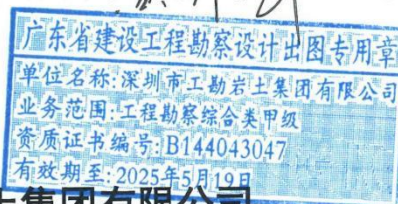 广东省建设工程勘察设计出图专用章
单位名称:深圳市工勘岩土集团有限公司
业务范围:工程勘察综合类甲级
资质证书编号:B144043047
有效期至:2025年5月19日
土集团有限公司